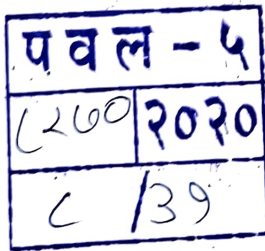 पवल - ५
८२७० २०२०
८ /३९